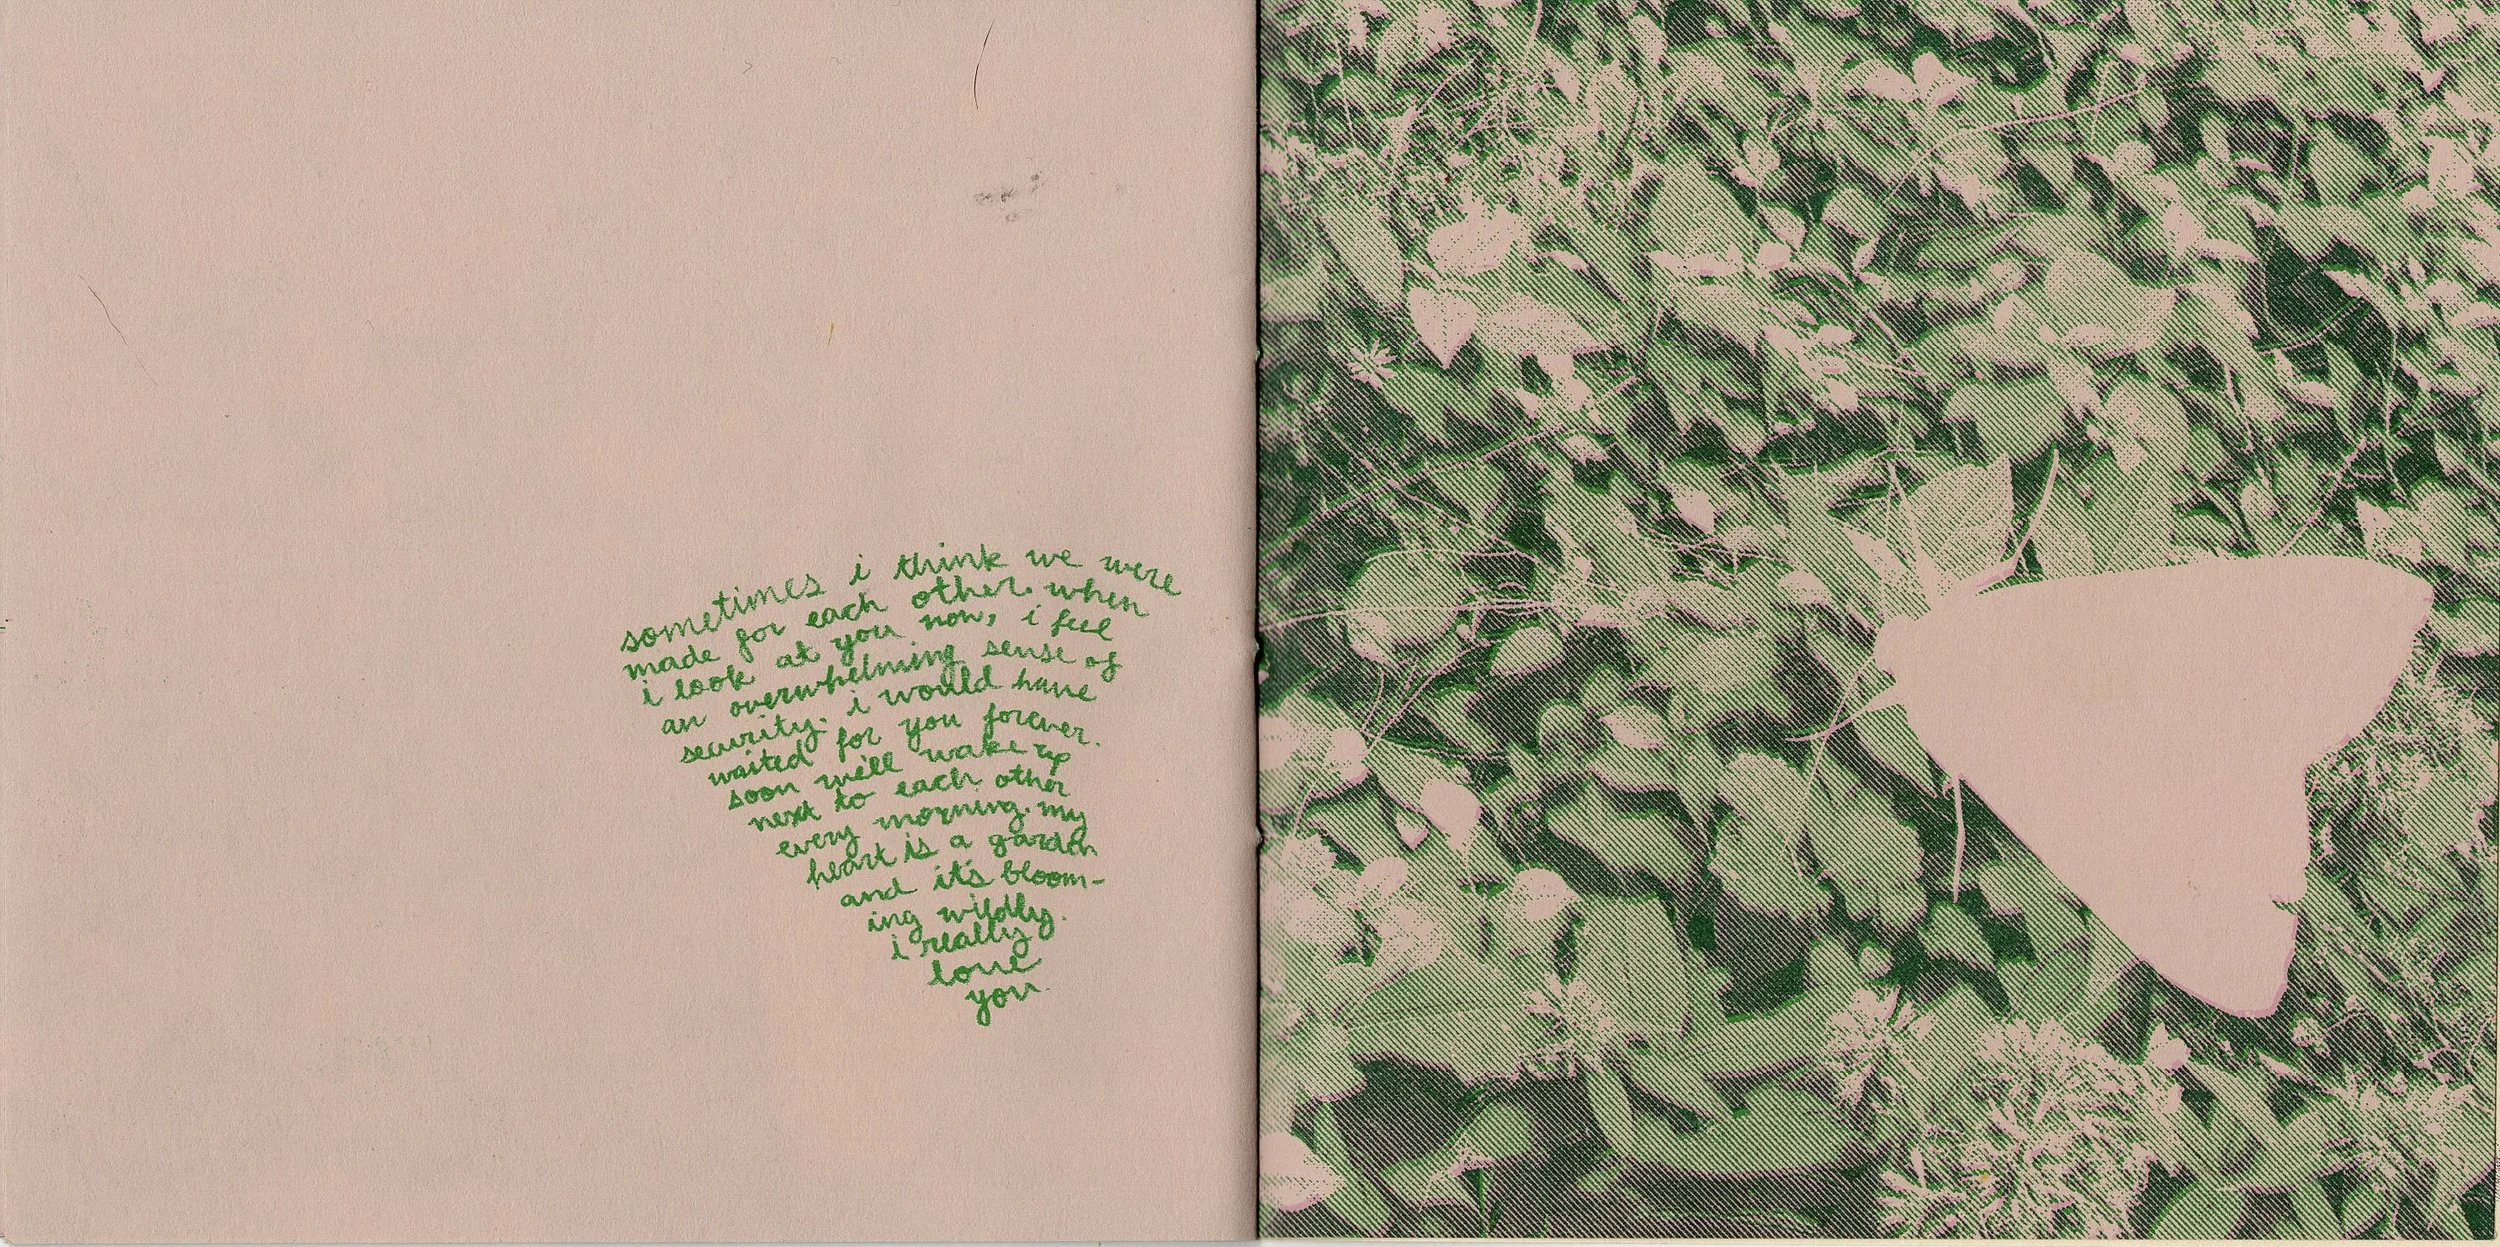 sometimes i think we were
made for each other. when
i look at you now, i feel
an overwhelming sense of
security. i would have
waited for you forever.
soon we'll wake up
next to each other
every morning. my
heart is a garden
and it's bloom-
ing wildly.
i really
love
you.